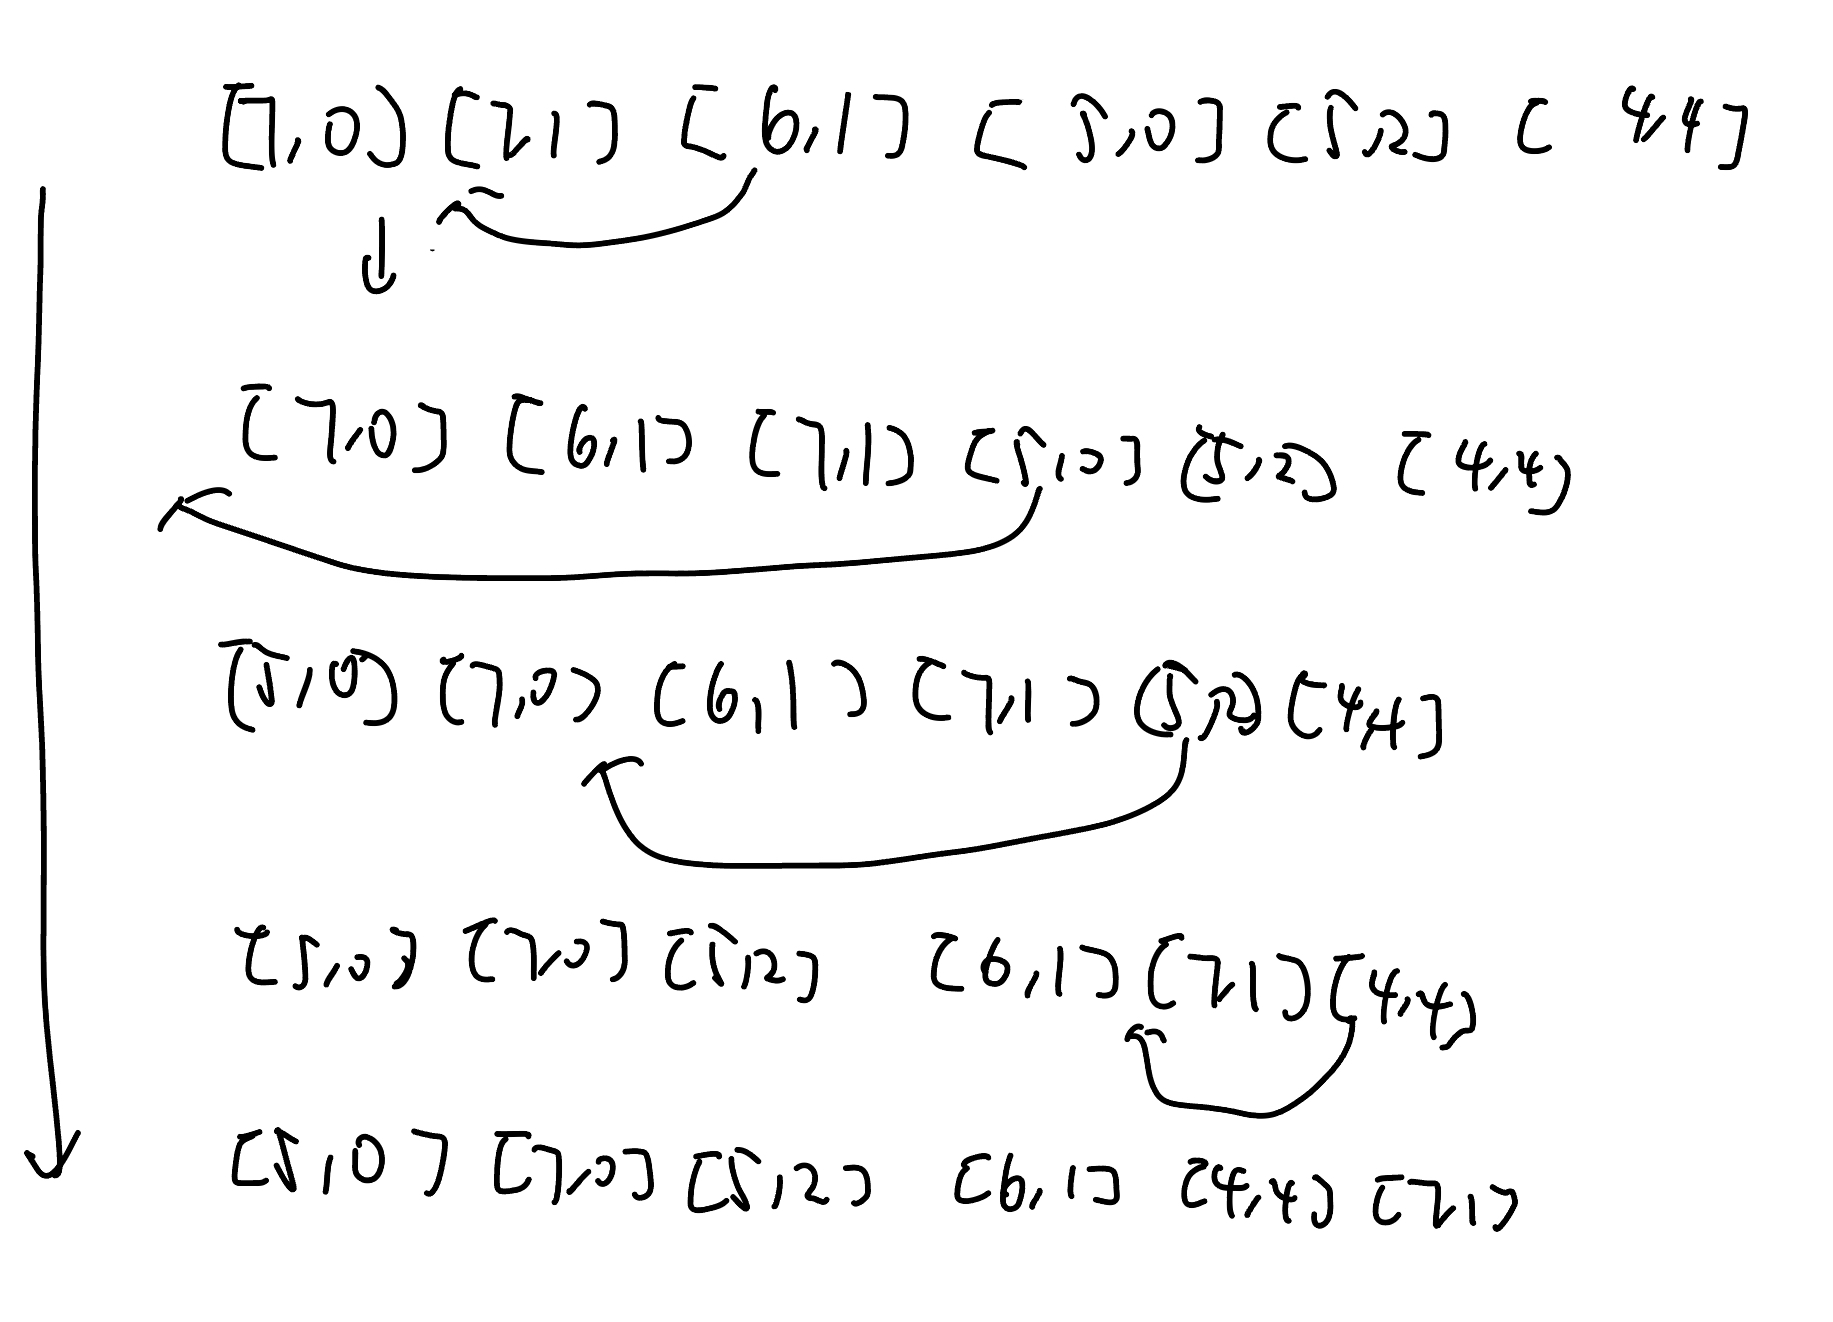 [7,0] [7,1] [6,1] [5,0] [5,2] [4,4]
[7,0] [6,1] [7,1] [5,0] [5,2] [4,4]
[5,0] [7,0] [6,1] [7,1] [5,2] [4,4]
[5,0] [7,0] [5,2] [6,1] [7,1] [4,4]
[5,0] [7,0] [5,2] [6,1] [4,4] [7,1]